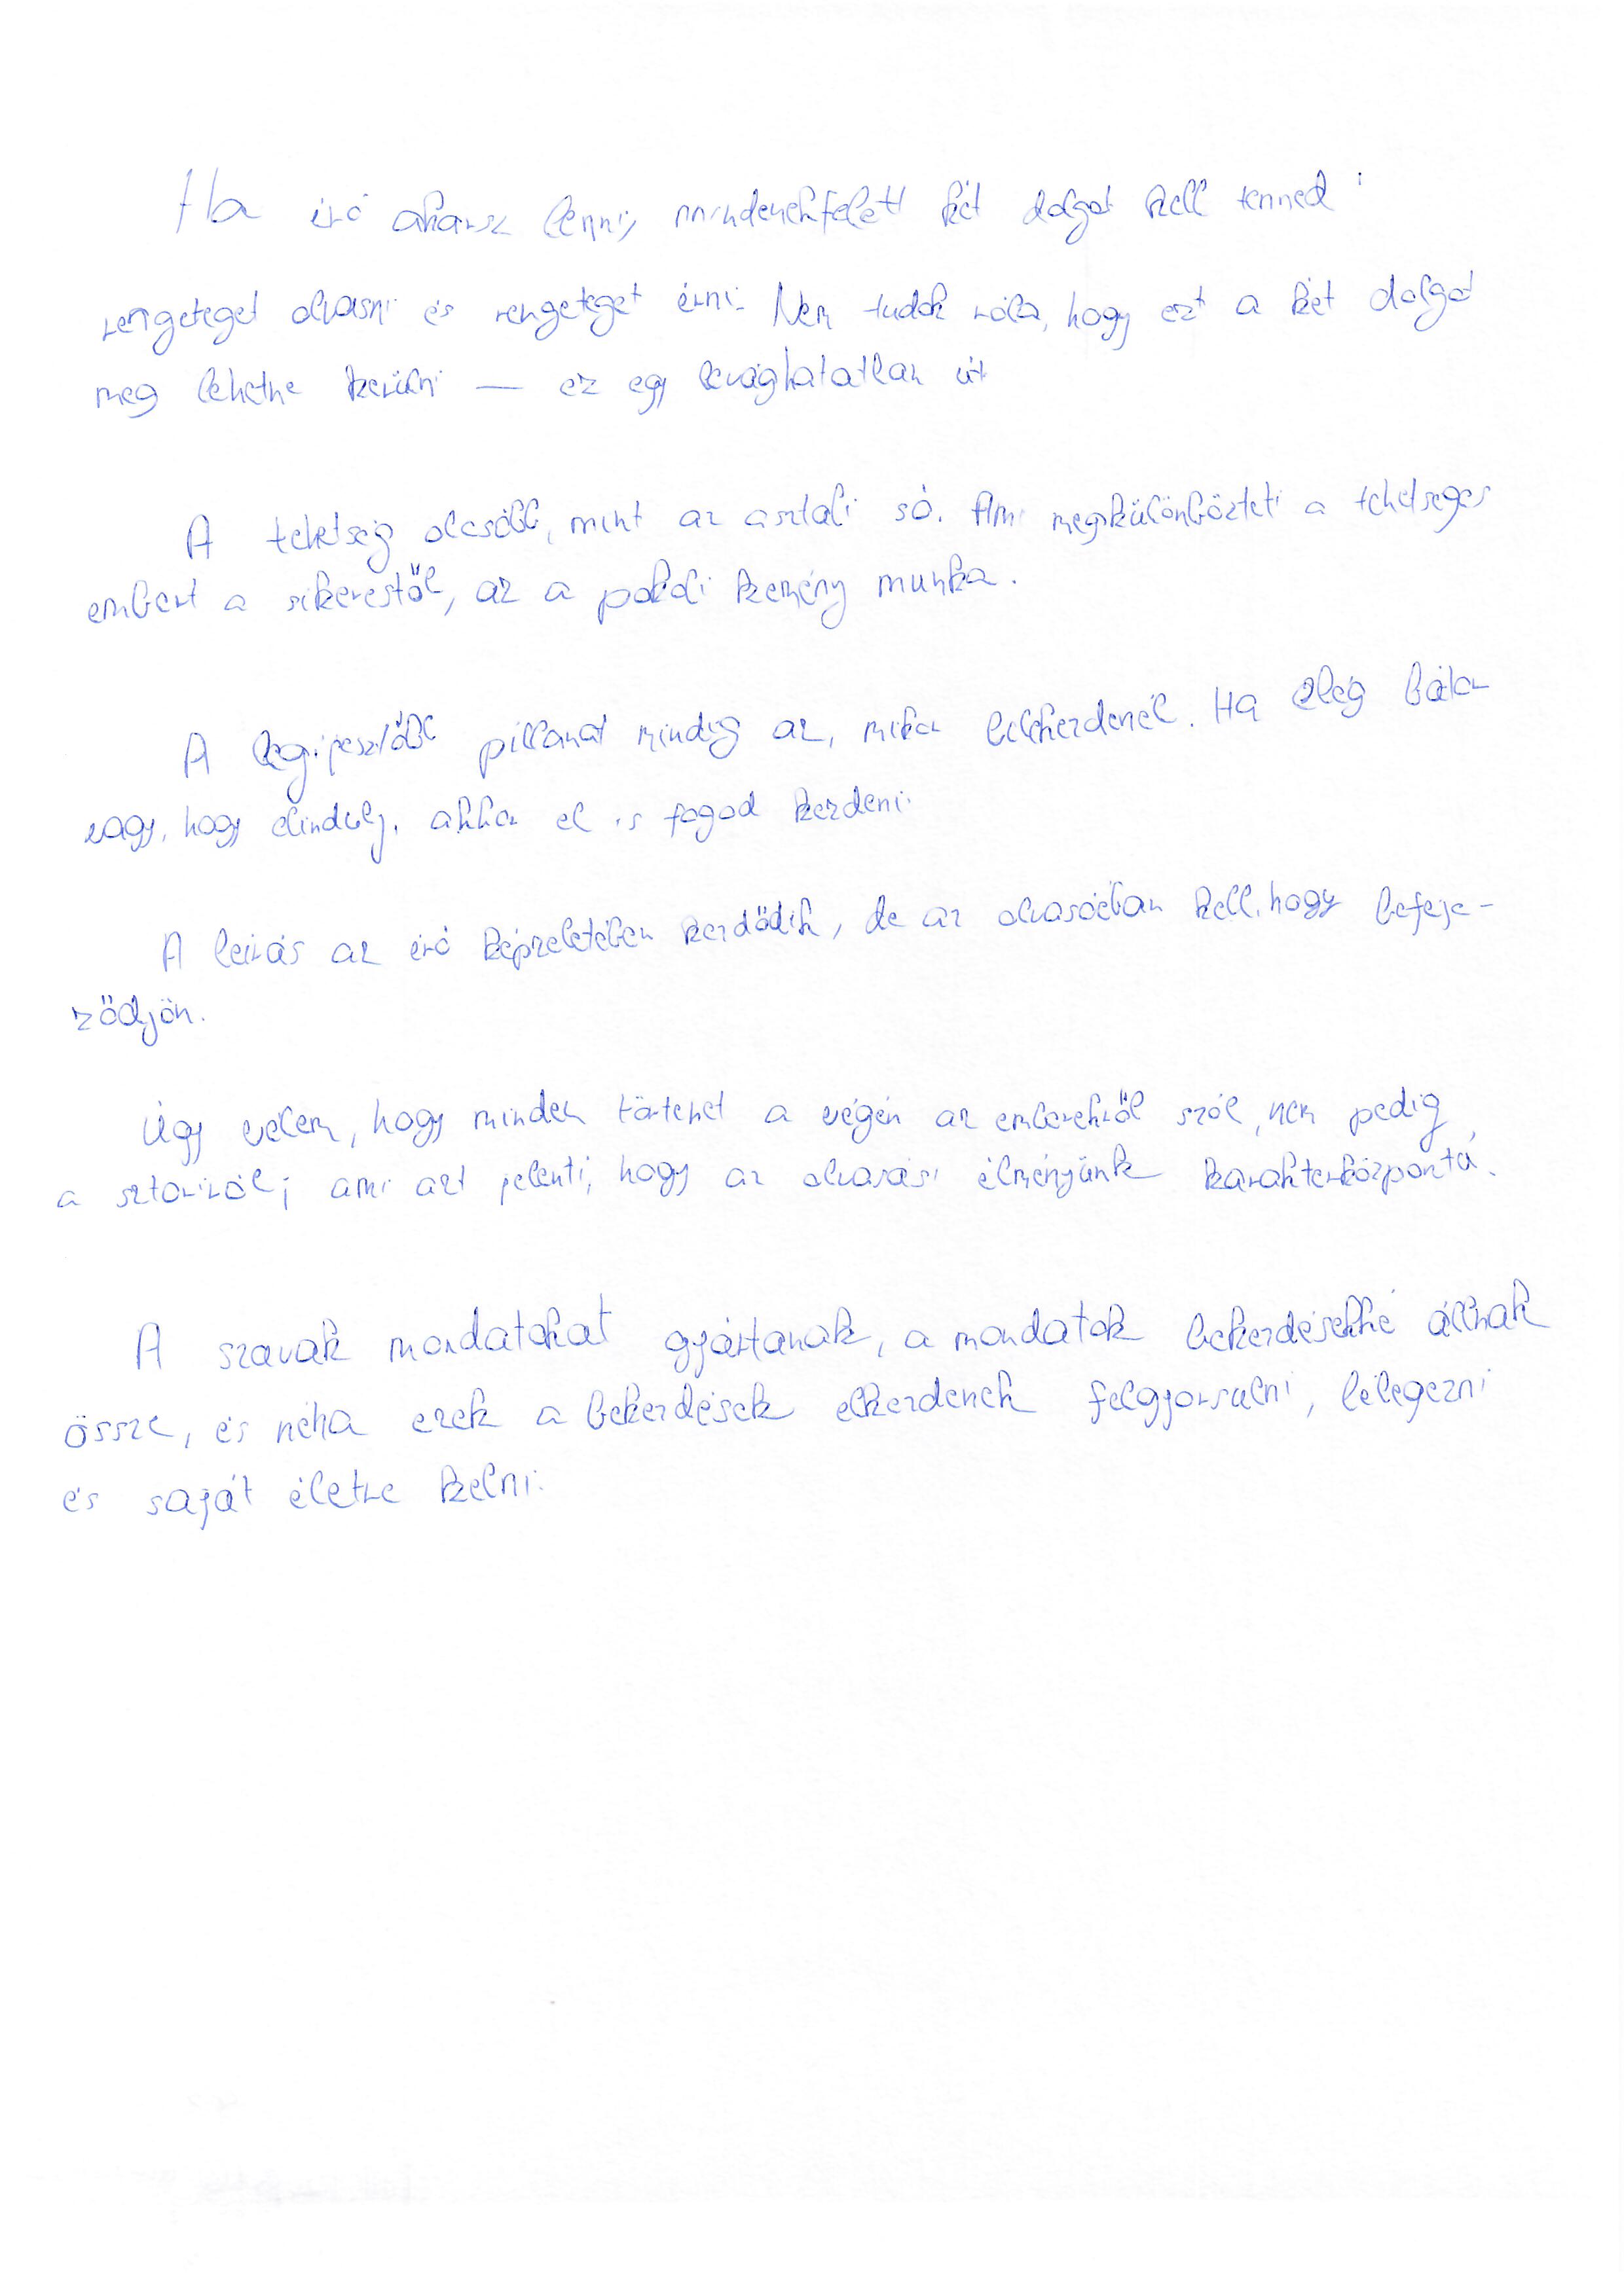 Ha író akarsz lenni, mindenekfelett két dolgot kell tenned:
rengeteget olvasni és rengeteget írni. Nem tudok róla, hogy ezt a két dolgot
meg lehetne kerülni — ez egy levághatatlan út
A tehetség olcsóbb, mint az asztali só. Ami megkülönbözteti a tehetséges
embert a sikerestől, az a pokoli kemény munka.
A legijesztőbb pillanat mindig az, mikor belekezdenél. Ha elég bátor
vagy, hogy elindulj, akkor el is fogod kezdeni.
A leírás az író képzeletében kezdődik, de az olvasóéban kell, hogy befeje-
ződjön.
Úgy vélem, hogy minden történet a végén az emberekről szól, nem pedig
a sztoriról; ami azt jelenti, hogy az olvasási élményünk karakterközpontú.
A szavak mondatokat gyártanak, a mondatok bekezdésekké állnak
össze, és néha ezek a bekezdések elkezdenek felgyorsulni, lélegezni
és saját életre kelni.